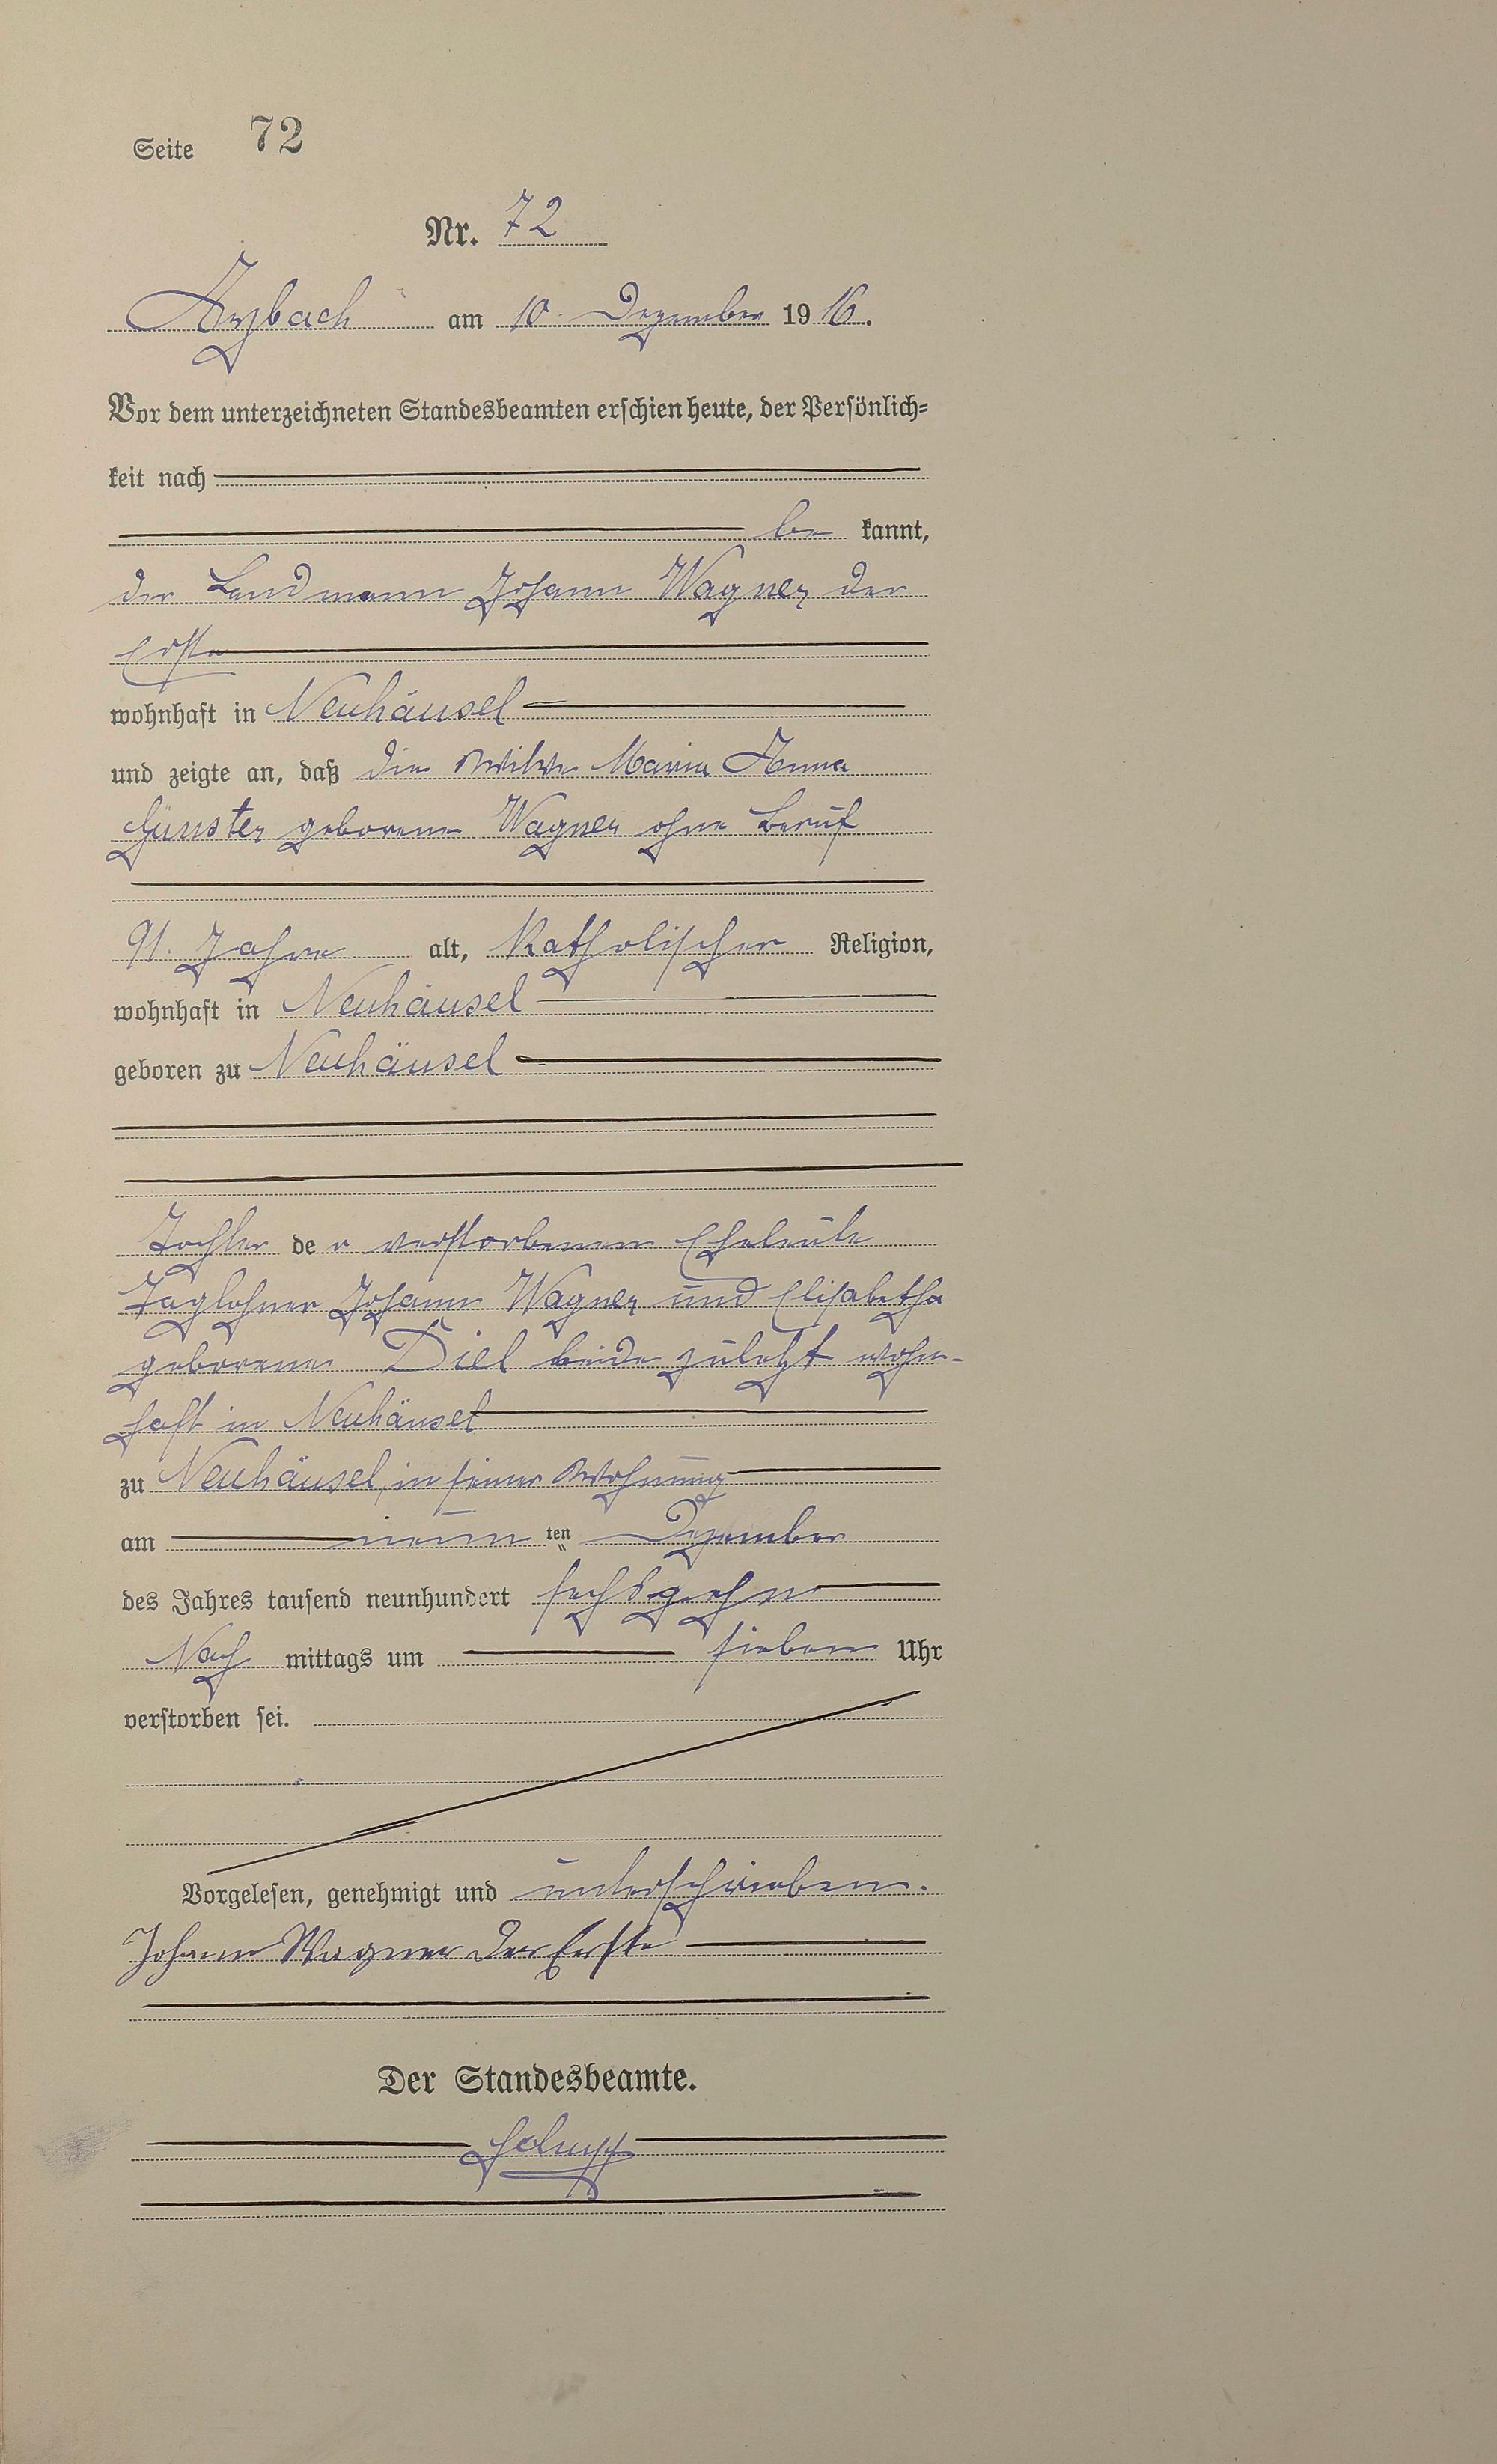 Seite 72
Nr. 72
Arzbach am 10. Dezember 1916.
Vor dem unterzeichneten Standesbeamten erschien heute, der Persönlich=
keit nach
be kannt,
der Landmann Johann Wagner der
Erste
wohnhaft in Neuhäusel
und zeigte an, daß die Witwe Maria Anna
Günster geborene Wagner ohne Beruf
91. Jahre alt, Katholischer Religion,
wohnhaft in Neuhäusel
geboren zu Neuhäusel
Tochter de r verstorbenen Eheleute
Taglohner Johann Wagner und Elisabetha
geborene Diel beide zuletzt wohn-
haft in Neuhäusel
zu Neuhäusel, in seiner Wohnung
am neun ten Dezember
des Jahres tausend neunhundert sechszehn
Nach mittags um sieben Uhr
verstorben sei.
Vorgelesen, genehmigt und unterschrieben.
Johann Wagner der Erste
Der Standesbeamte.